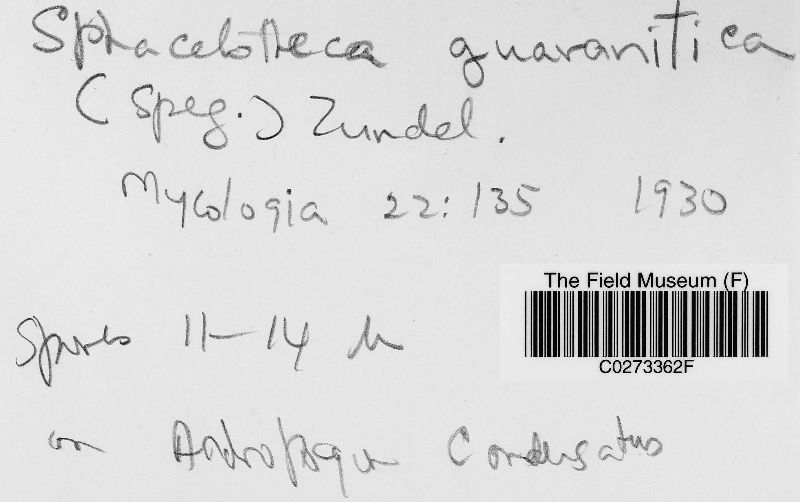 Sphacelotheca guaranitica
(Speg.) Zundel.
Mycologia 22:135 1930
The Field Museum (F)
C0273362F
Spores 11-14 µ
on Andropogon Condensatus